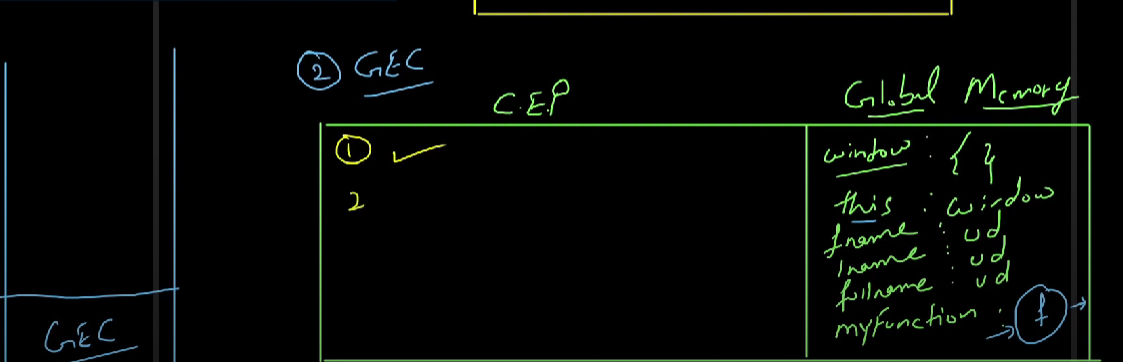 ② GEC
C.E.P
Global Memory
① ✓
2
window : { }
this : window
fname : ud
lname : ud
fullname : ud
myfunction : → f →
GEC